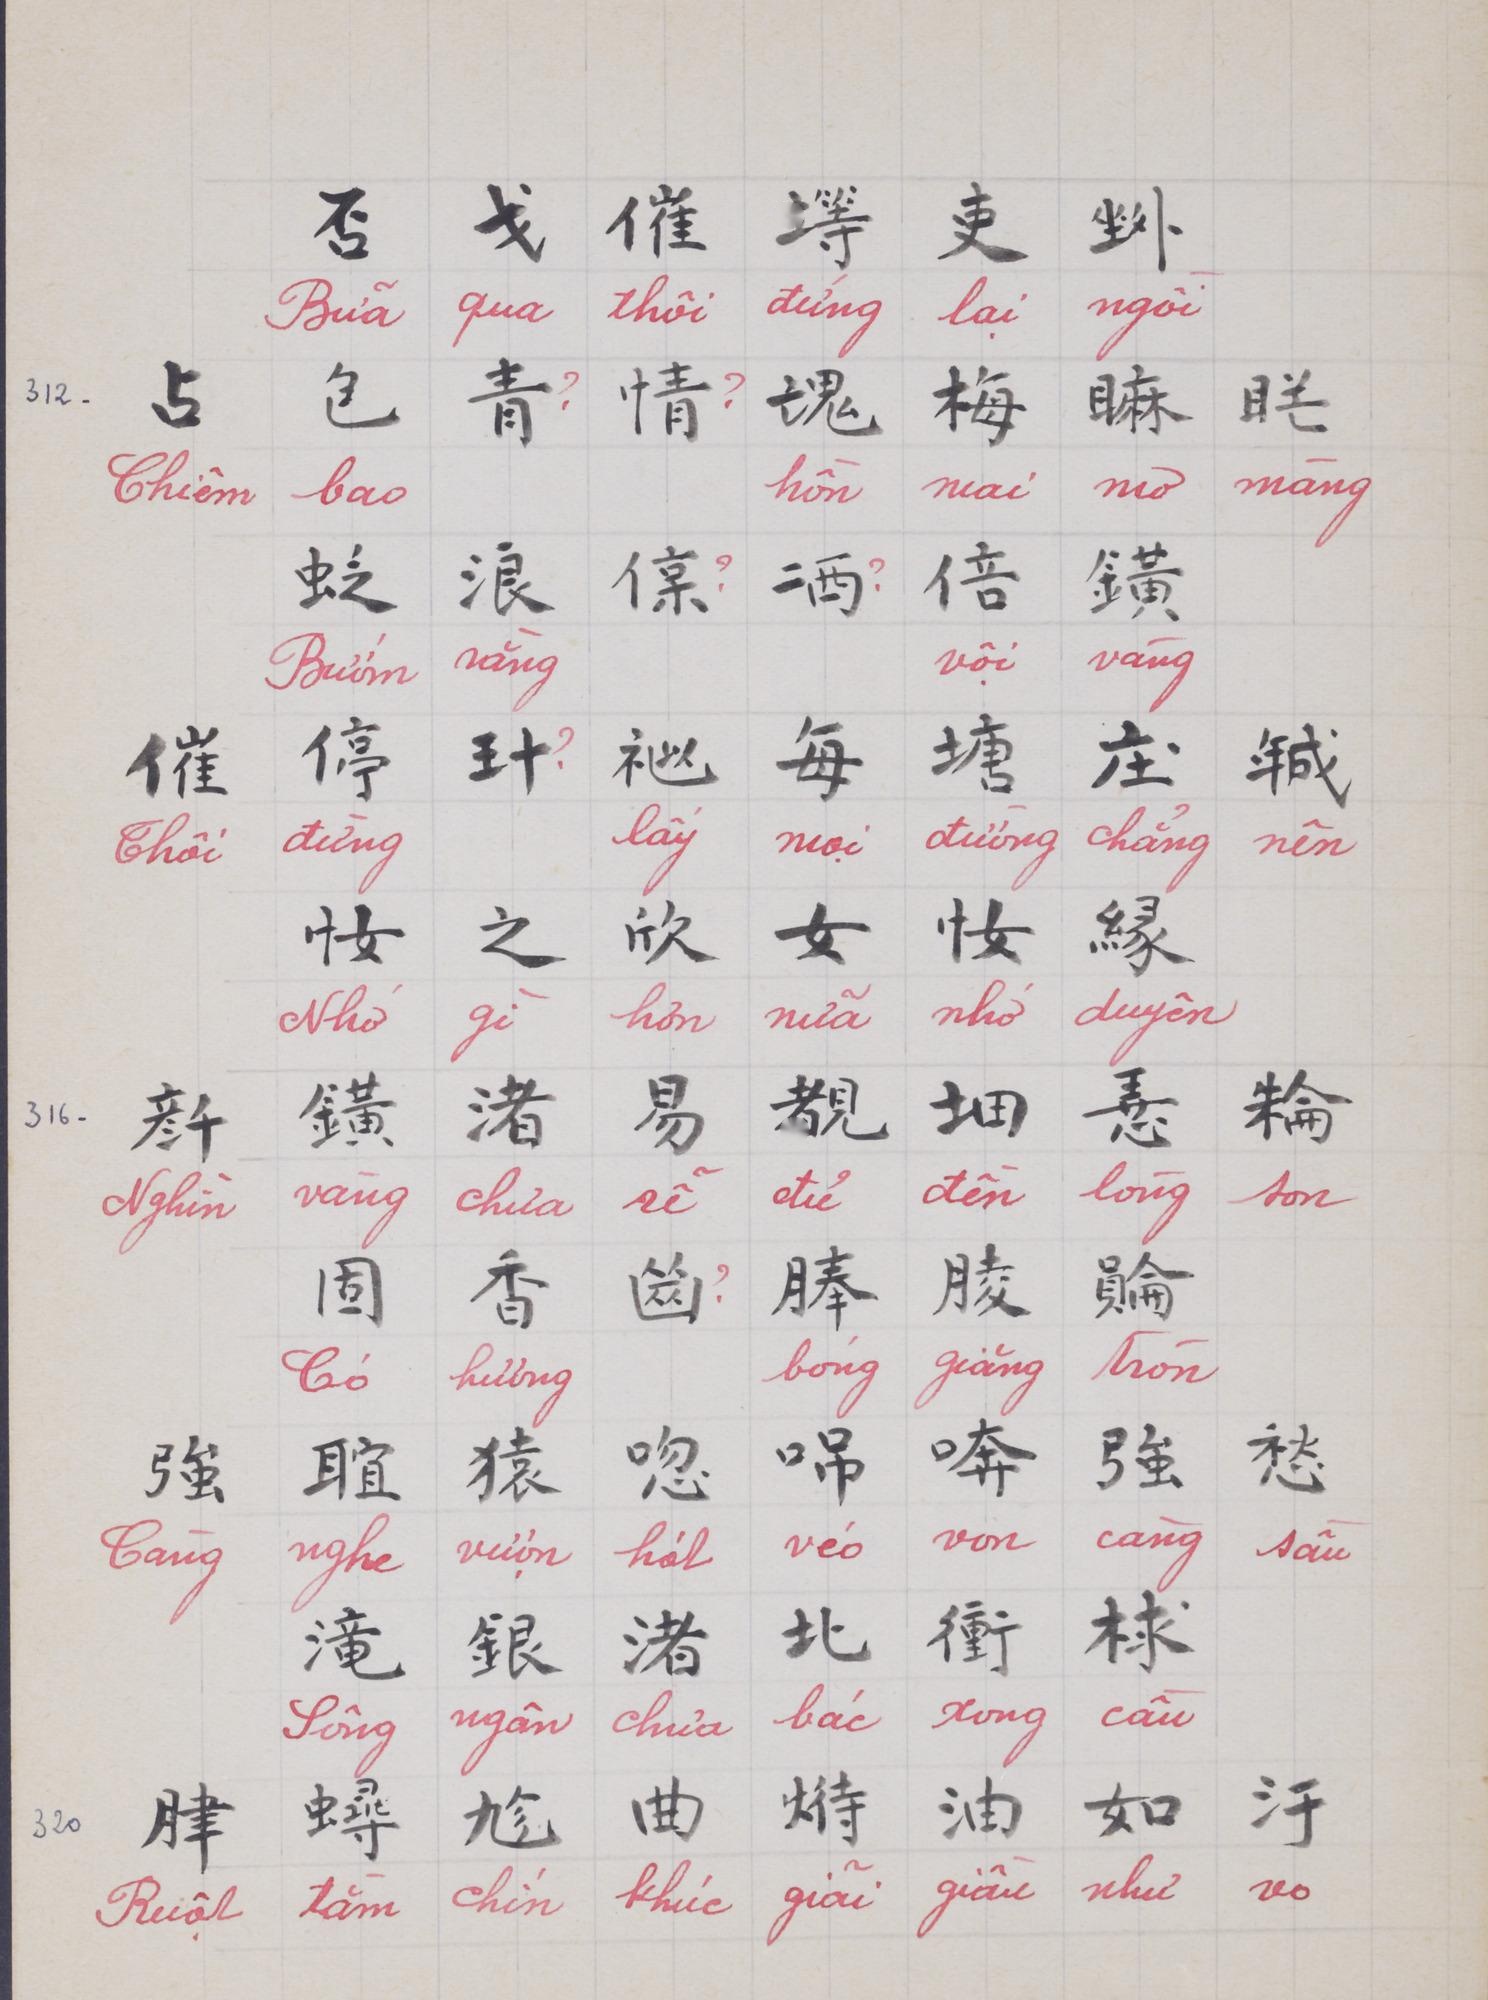 否 戈 催 䇏 吏 𡎢
Bữa qua thôi đứng lại ngồi
312- 占 包 青? 情? 魂 梅 𥊚 𥆄
Chiêm bao hồn mai mơ màng
𧊉 浪 偨? 洒? 倍 鐄
Bướm rằng vội vàng
催 停 玤? 𥙩 每 塘 庄 𢧚
Thôi đừng lấy mọi đường chẳng nên
𢖵 之 欣 女 𢖵 緣
Nhớ gì hơn nữa nhớ duyên
316- 𠦳 鐄 渚 易 覩 坤 𢚸 𣘈
Nghìn vàng chưa rễ đủ đền lòng son
固 香 齒? 䏾 𦝄 𧷺
Có hương bóng giăng tròn
強 𦖑 猿 唿 𠵎 𠹚 強 愁
Càng nghe vượn hót véo von càng sầu
滝 銀 渚 北 衝 梂
Sông ngân chưa bác xong cầu
320 𦛌 蟳 𠃩 曲 𤌣 油 如 汙
Ruột tằm chín khúc giãi giầu như vo